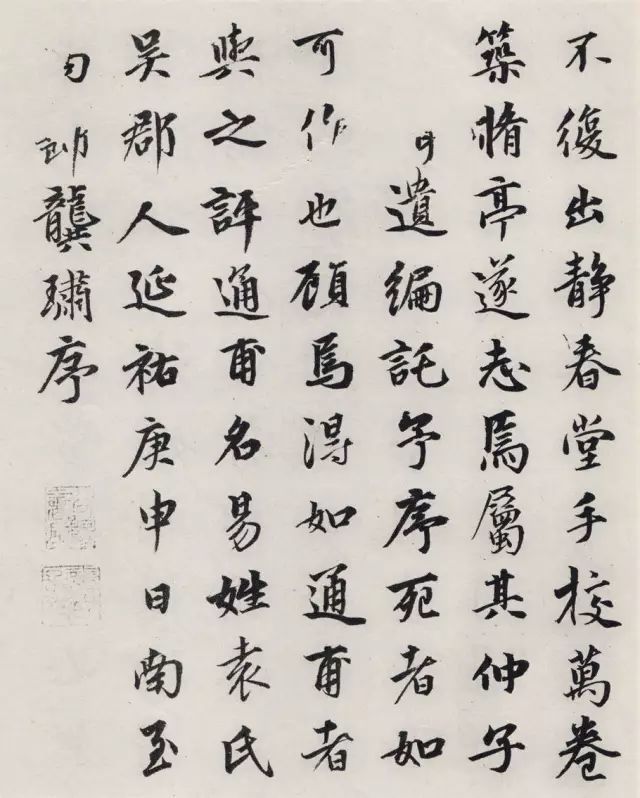 不復出静春堂手校萬卷
築亭遂志焉屬其仲子
遺編託予序死者如
可作也顧焉得如通甫者
與之評通甫名易姓袁氏
吳郡人延祐庚申日南至
龔璛序